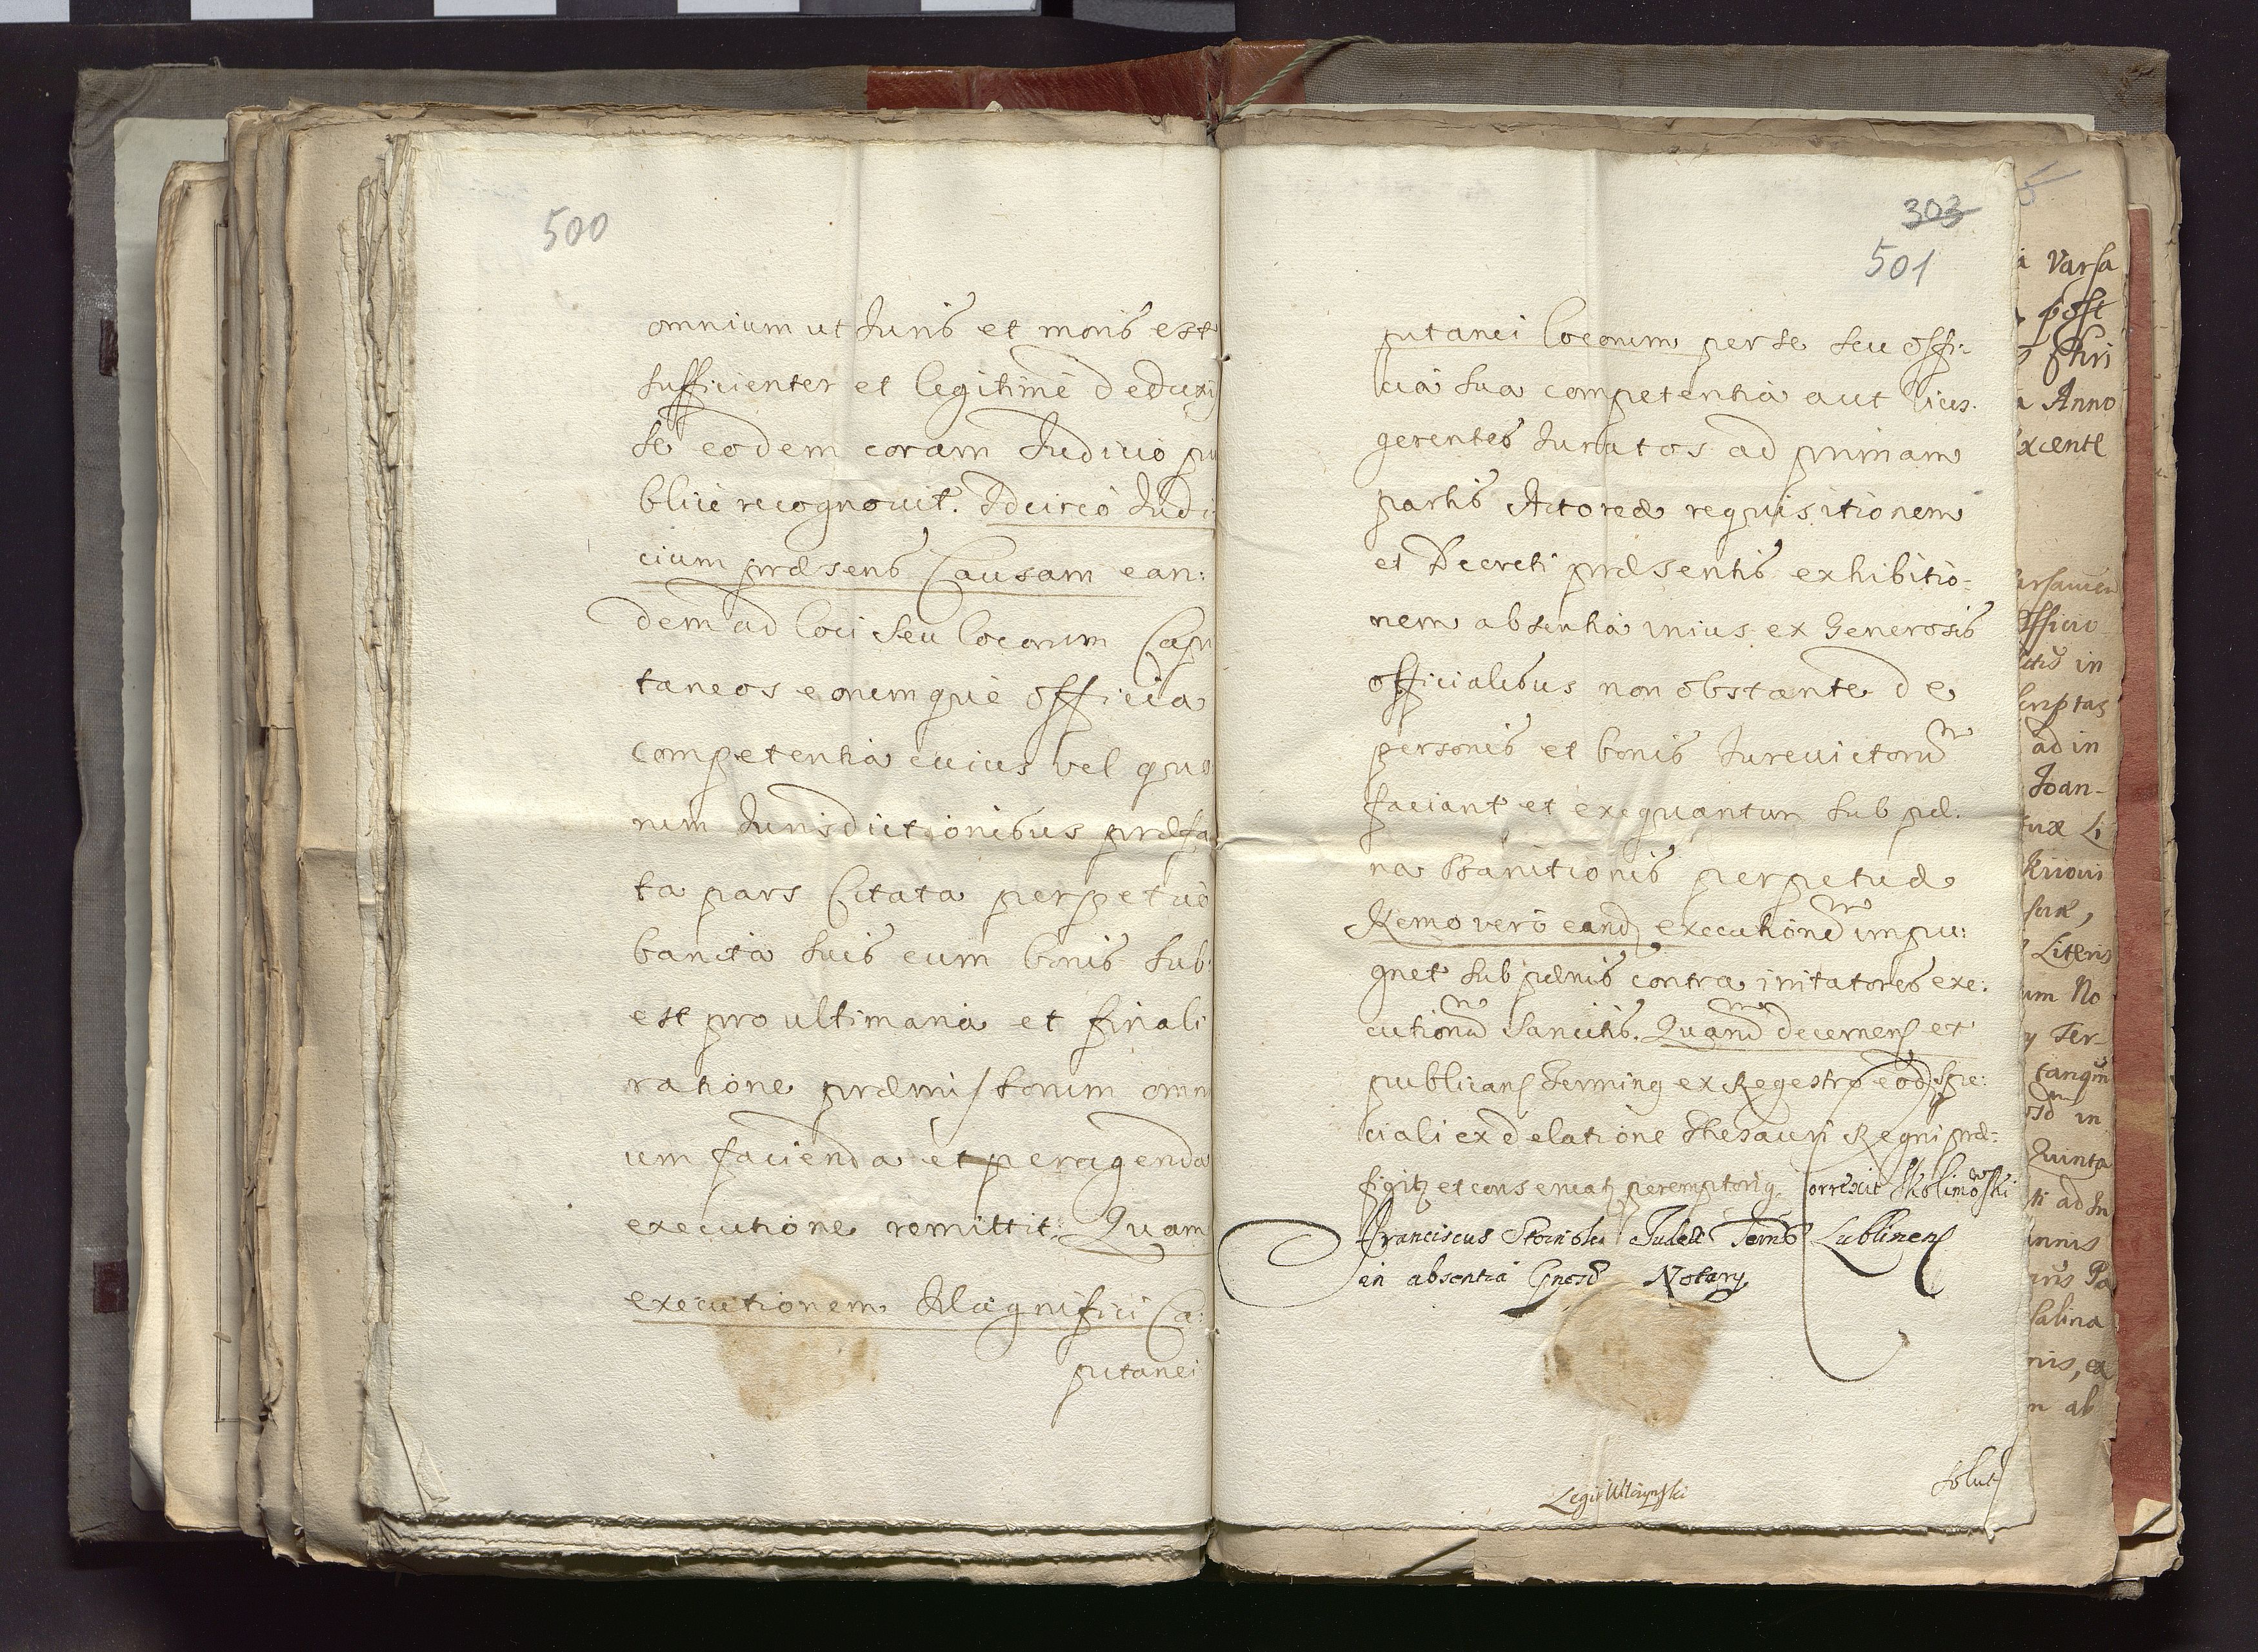 500
omnium ut Juris et moris est
sufficienter et legitimè deduxis
se eodem coram Judicio pu
blicè recognovit. Idcircò Judi
cium præsens Causam ean:
dem ad loci seu locorum Capi
taneos eorumquè officia
competentia cuius vel quo
rum Jurisdictionibus præfa
ta pars Citata perpetuò
bannita suis cum bonis sub
est pro ultimaria et finali
ratione præmissorum omni
um facienda et peragenda
executione remittit. Quam
executionem Magnifici Ca:
pitanei
303
501
pitanei locorum per se seu offi:
cia sua competentia aut vices
gerentes Juratos ad primam
partis Actoreæ requisitionem
et Decreti præsentis exhibitio:
nem absentia unius ex Generosis
officialibus non obstante de
personis et bonis Jurevictorum
faciant et exequantur sub pæ:
na Bannitionis perpetuæ
Remo verò eand executionem impu:
gnet sub pænis contra irritatores exe:
cutionum sancitis. Quam decernens et
publicans terminus ex Regestro eod spe:
ciali ex delatione Thesauri Regni præ:
figitur et conservatur peremptorius. Correxit Skolimowski
Franciscus Judex Lublinens
in absentia Notary
Legit
Solut
a Varsa
post
a Anno
Officio
ad in
Joan-
Literis
um No
y Ter-
in
Quinta
ti ad In
Salina
nis, ex
n ab